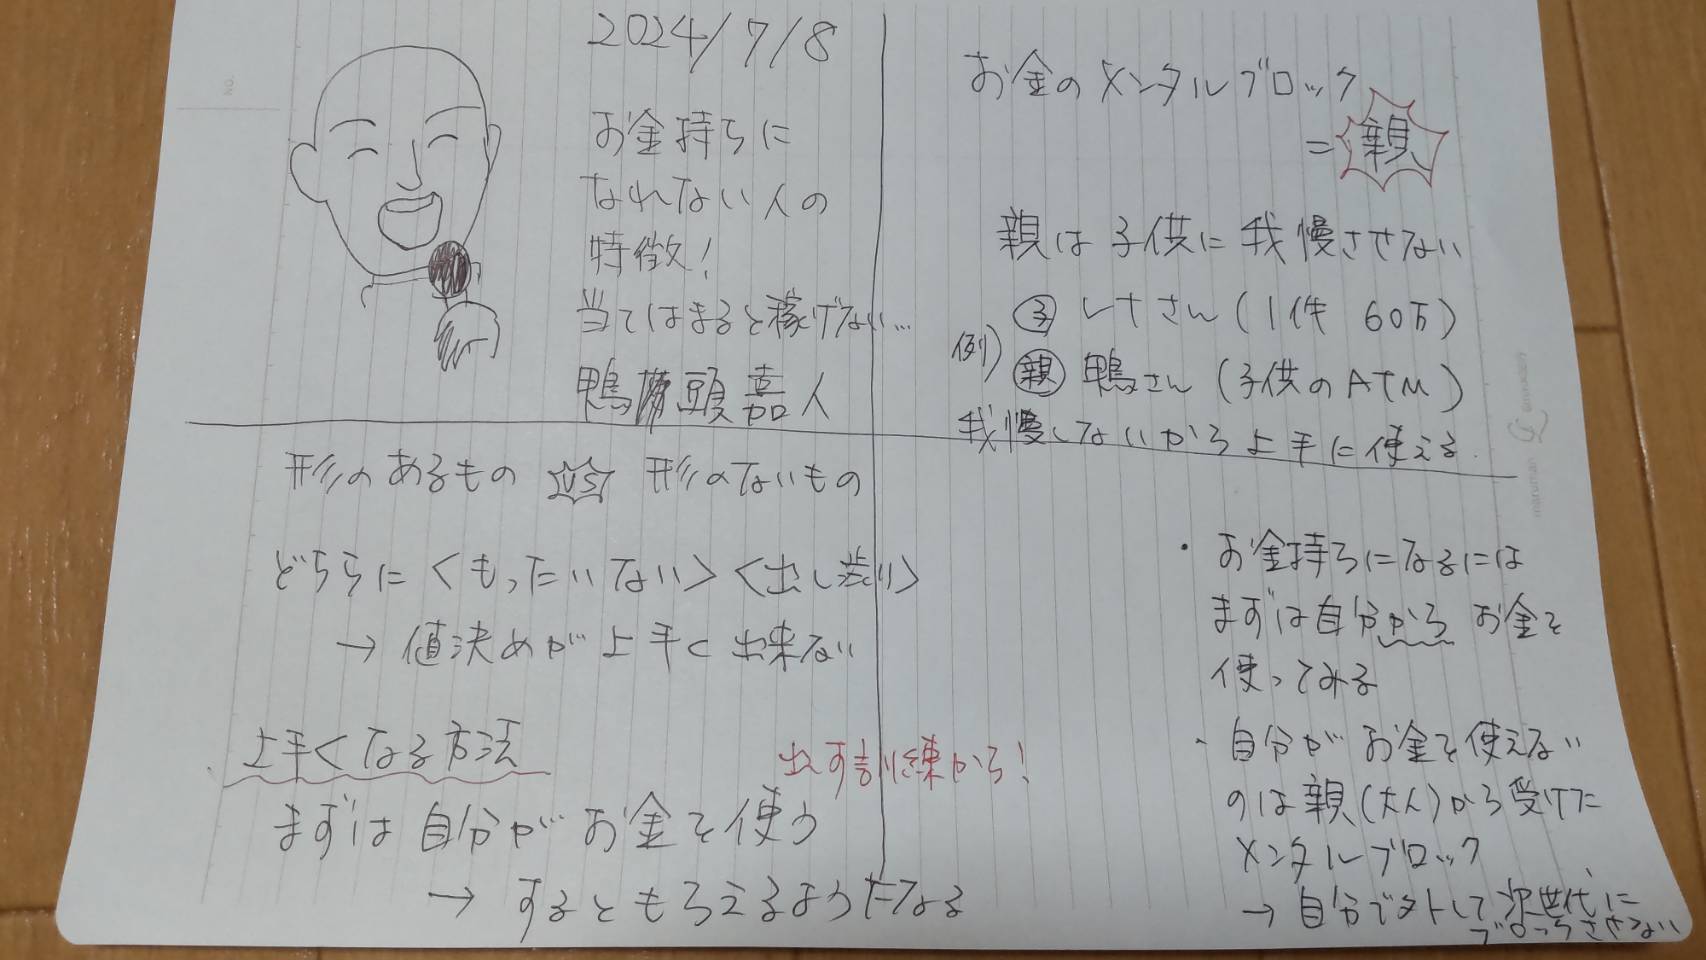 2024/7/8
お金持ちに
なれない人の
特徴!
当てはまると稼げない…
鴨頭嘉人
お金のメンタルブロック
=親
親は子供に我慢させない
例)
子 レナさん(1件 60万)
親 鴨さん(子供のATM)
我慢しないから上手に使える
形のあるもの VS 形のないもの
どちらに<もったいない><出し渋り>
→ 値決めが上手く出来ない
上手くなる方法
出す訓練から!
まずは自分がお金を使う
→ するともらえるようになる
・お金持ちになるには
まずは自分からお金を
使ってみる
・自分がお金を使えない
のは親(大人)から受けた
メンタルブロック
→ 自分で外して次世代に
ブロックさせない
NO.
maruman